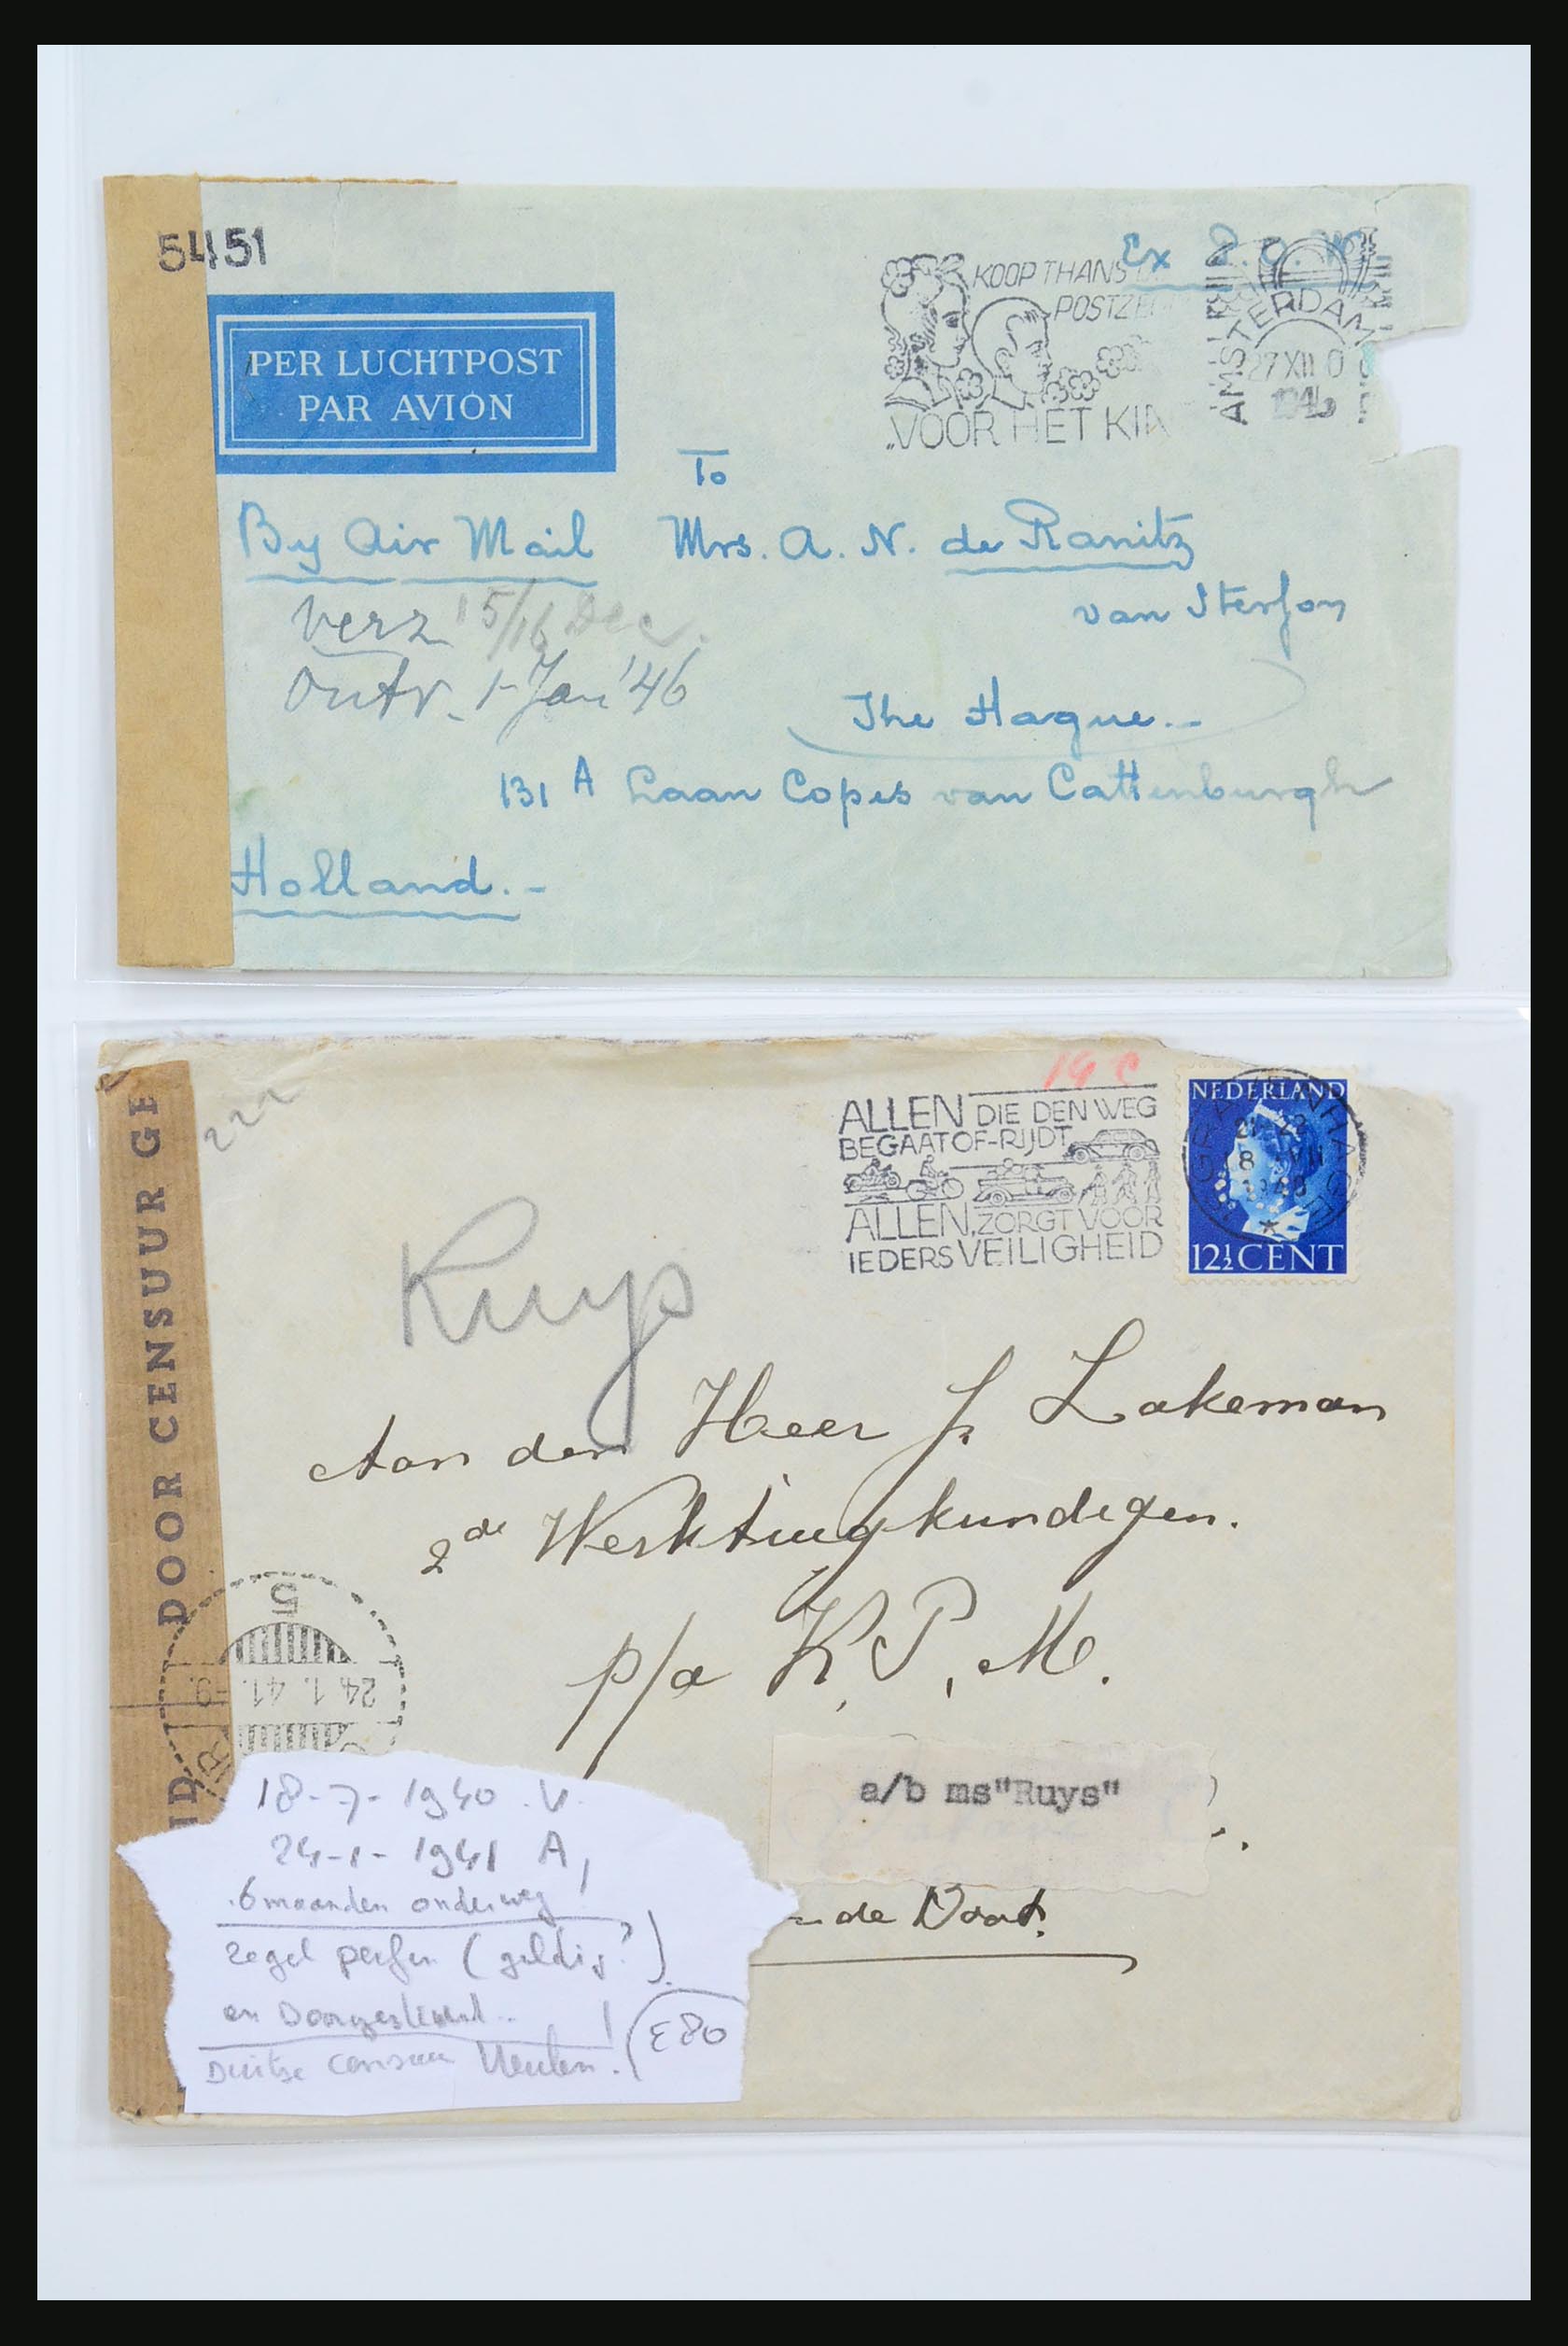 5451
Ex
KOOP THANS
POSTZE
„VOOR HET KIN
AMSTERDAM
27 XII
PER LUCHTPOST
PAR AVION
To
By Air Mail
Mrs. A. N. de Ranitz
van
verz 15/16 Dec.
Ontv. 1-Jan '46
The Hague.-
131 A Laan Copes van Cattenburgh
Holland.-
19 c
ALLEN DIE DEN WEG
BEGAAT OF-RIJDT
ALLEN, ZORGT VOOR
IEDERS VEILIGHEID
NEDERLAND
12½ CENT
DOOR CENSUUR GE
Ruys
Aan den Heer J. Lakeman
2de Werktuigkundigen.
p/a K.P.M.
a/b ms"Ruys"
de Oost.
5
24.1.41.
18-7-1940 V.
24-1-1941 A,
6 maanden onderweg
zegel perfin (geldig?)
en Doorgestuurd.. !
Duitse censuur
E80